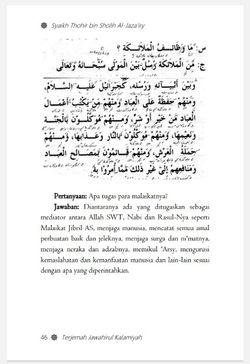 Syaikh Thohir bin Sholih Al-Jaza'iry
س: مَا وَظَائِفُ الْمَلَائِكَةِ؟
ج: مِنَ الْمَلَائِكَةِ رُسُلٌ بَيْنَ الْمَوْلَى سُبْحَانَهُ وَتَعَالَى
وَبَيْنَ أَنْبِيَائِهِ وَرُسُلِهِ، كَجِبْرَائِيلَ عَلَيْهِ السَّلَامُ،
وَمِنْهُمْ حَفَظَةٌ عَلَى الْعِبَادِ وَمِنْهُمْ مَنْ يَكْتُبُ أَعْمَالَ
الْعِبَادِ مِنْ خَيْرٍ أَوْ شَرٍّ، وَمِنْهُمْ مُوَكَّلُونَ بِالْجَنَّةِ
وَنَعِيمِهَا، وَمِنْهُمْ مُوَكَّلُونَ بِالنَّارِ وَعَذَابِهَا، وَمِنْهُمْ
حَمَلَةُ الْعَرْشِ، وَمِنْهُمْ قَائِمُونَ بِمَصَالِحِ الْعِبَادِ
وَمَنَافِعِهِمْ إِلَى غَيْرِ ذَلِكَ مِمَّا أُمِرُوا بِهِ.
Pertanyaan: Apa tugas para malaikatnya?
Jawaban: Diantaranya ada yang ditugaskan sebagai
mediator antara Allah SWT, Nabi dan Rasul-Nya seperti
Malaikat Jibril AS, menjaga manusia, mencatat semua amal
perbuatan baik dan jeleknya, menjaga surga dan ni'matnya,
menjaga neraka dan adzabnya, memikul 'Arsy, mengurusi
kemaslahatan dan kemanfaatan manusia dan lain-lain sesuai
dengan apa yang diperintahkan.
46 Terjemah Jawahirul Kalamiyah